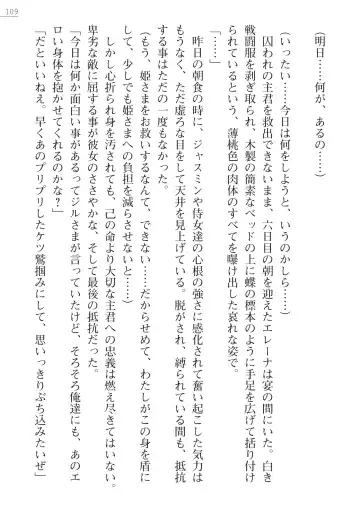 109
(明日……何が、あるの……)
(いったい……今日は何をしようと、いうのかしら……)
囚われの主君を救出できないまま、六日目の朝を迎えたエレーナは宴の間にいた。白き
戦闘服を剥ぎ取られ、木製の簡素なベッドの上に蝶の標本のように手足を広げて括り付け
られているという、薄桃色の肉体のすべてを曝け出した哀れな姿で。
「……」
昨日の朝食の時に、ジャスミンや侍女達の心根の強さに感化されて奮い起こした気力は
もうなく、ただ虚ろな目をして天井を見上げている。脱がされ、縛られている間も、抵抗
する事はただの一度もなかった。
(もう、姫さまをお救いするなんて、できない……だからせめて、わたしがこの身を盾に
して、少しでも姫さまへの負担を減らさないと……)
しかし心折られ身を汚されても、己の命より大切な主君への忠義は燃え尽きてはいない。
卑劣な敵に屈する事が彼女のささやかな、そして最後の抵抗だった。
「今日は何か面白い事があるってジルさまが言っていたけど、そろそろ俺達にも、あのエ
ロい身体を抱かせてくれるのかな?」
「だといいねえ。早くあのプリプリしたケツ鷲掴みにして、思いっきりぶち込みたいぜ」